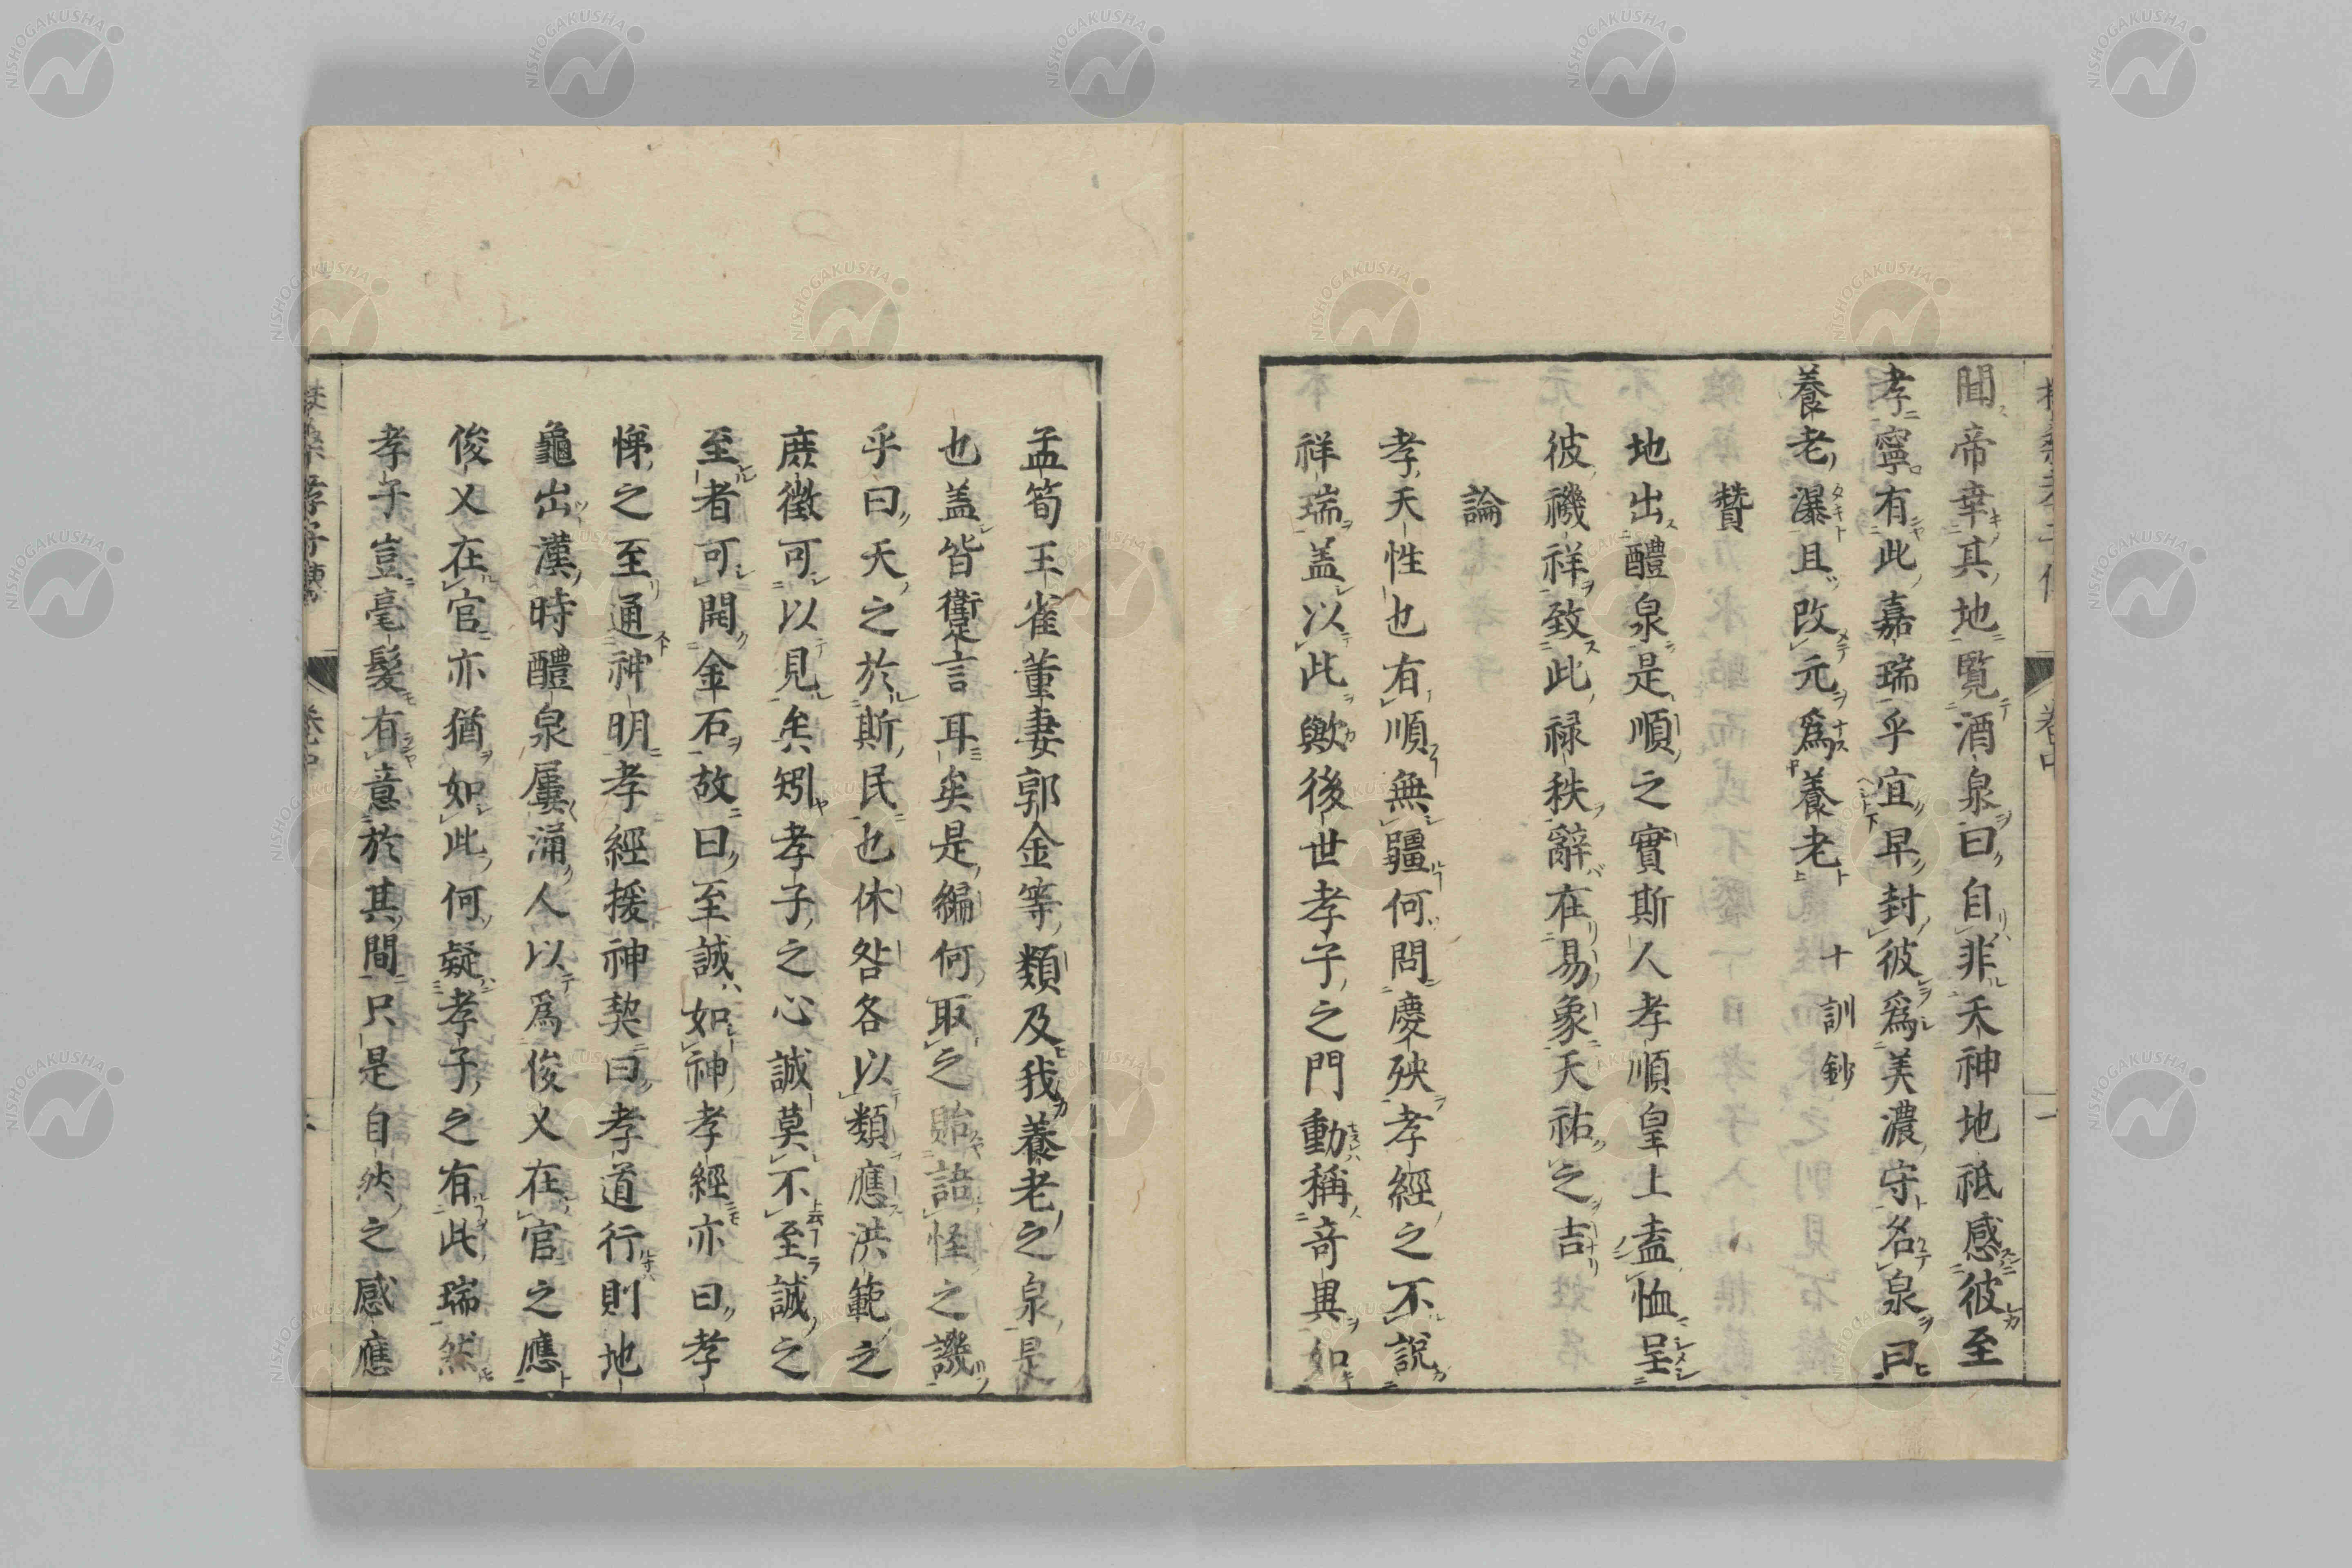 聞帝幸其地覧酒泉曰自非天神地祇感彼至
孝寧有此嘉瑞乎宜早封彼爲美濃守名泉曰
養老瀑且改元爲養老 十訓鈔
贊
地出醴泉是順之實斯人孝順皇上盍恤呈
彼禨祥致此禄秩辭在易象天祐之吉
論
孝天性也有順無疆何問慶殃孝經之不說
祥瑞盖以此歟後世孝子之門動稱奇異如
孟筍王雀董妻郭金等類及我養老之泉是
也盖皆衞言耳矣是編何取之貽詰怪之譏
乎曰天之於斯民也休咎各以類應洪範之
庻徴可以見矣矧孝子之心誠莫不至誠之
至者可開金石故曰至誠如神孝經亦曰孝
悌之至通神明孝經援神契曰孝道行則地
龜出漢時醴泉屢涌人以爲俊乂在官之應
俊乂在官亦猶如此何疑孝子之有此瑞然
孝子豈毫髮有意於其間只是自然之感應
扶桑孝子傳 卷中
NISHOGAKUSHA